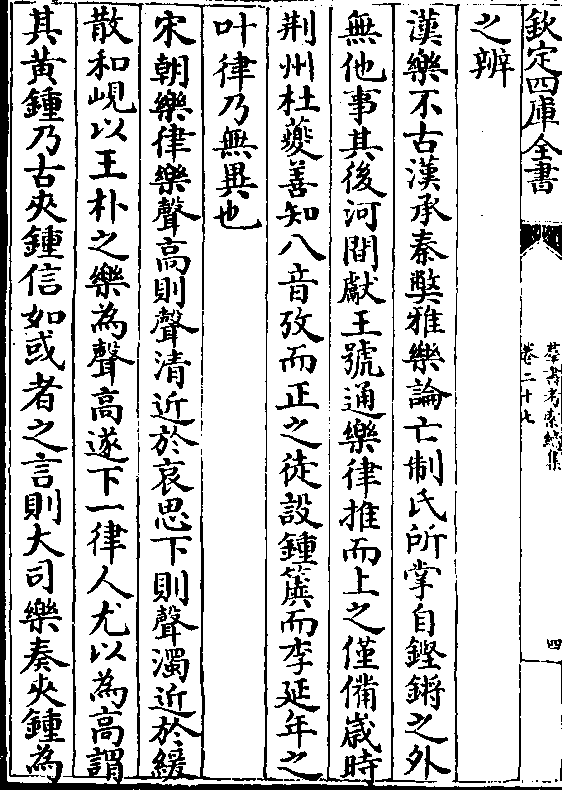 欽定四庫全書
羣書考索續集
卷二十七
四
之辨
漢樂不古漢承秦獘雅樂論亡制氏所掌自鏗鏘之外
無他事其後河間獻王號通樂律推而上之僅備歲時
荆州杜夔善知八音攷而正之徒設鍾簴而李延年之
叶律乃無異也
宋朝樂律樂聲高則聲清近於哀思下則聲濁近於緩
散和峴以王朴之樂為聲高遂下一律人尤以為高謂
其黄鍾乃古夾鍾信如或者之言則大司樂奏夾鍾為